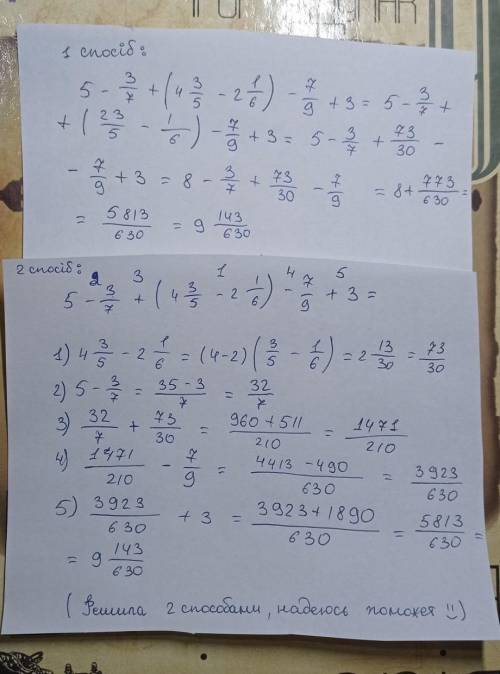 1 спосіб:
5 - 3/7 + (4 3/5 - 2 1/6) - 7/9 + 3 = 5 - 3/7 +
+ (23/5 - 1/6) - 7/9 + 3 = 5 - 3/7 + 73/30 -
- 7/9 + 3 = 8 - 3/7 + 73/30 - 7/9 = 8 + 773/630 =
= 5813/630 = 9 143/630
2 спосіб:
2 3 1 4 5
5 - 3/7 + (4 3/5 - 2 1/6) - 7/9 + 3 =
1) 4 3/5 - 2 1/6 = (4-2) (3/5 - 1/6) = 2 13/30 = 73/30
2) 5 - 3/7 = 35-3/7 = 32/7
3) 32/7 + 73/30 = 960+511/210 = 1471/210
4) 1471/210 - 7/9 = 4413-490/630 = 3923/630
5) 3923/630 + 3 = 3923+1890/630 = 5813/630 =
= 9 143/630
(Решила 2 способами, надеюсь поможет !!)